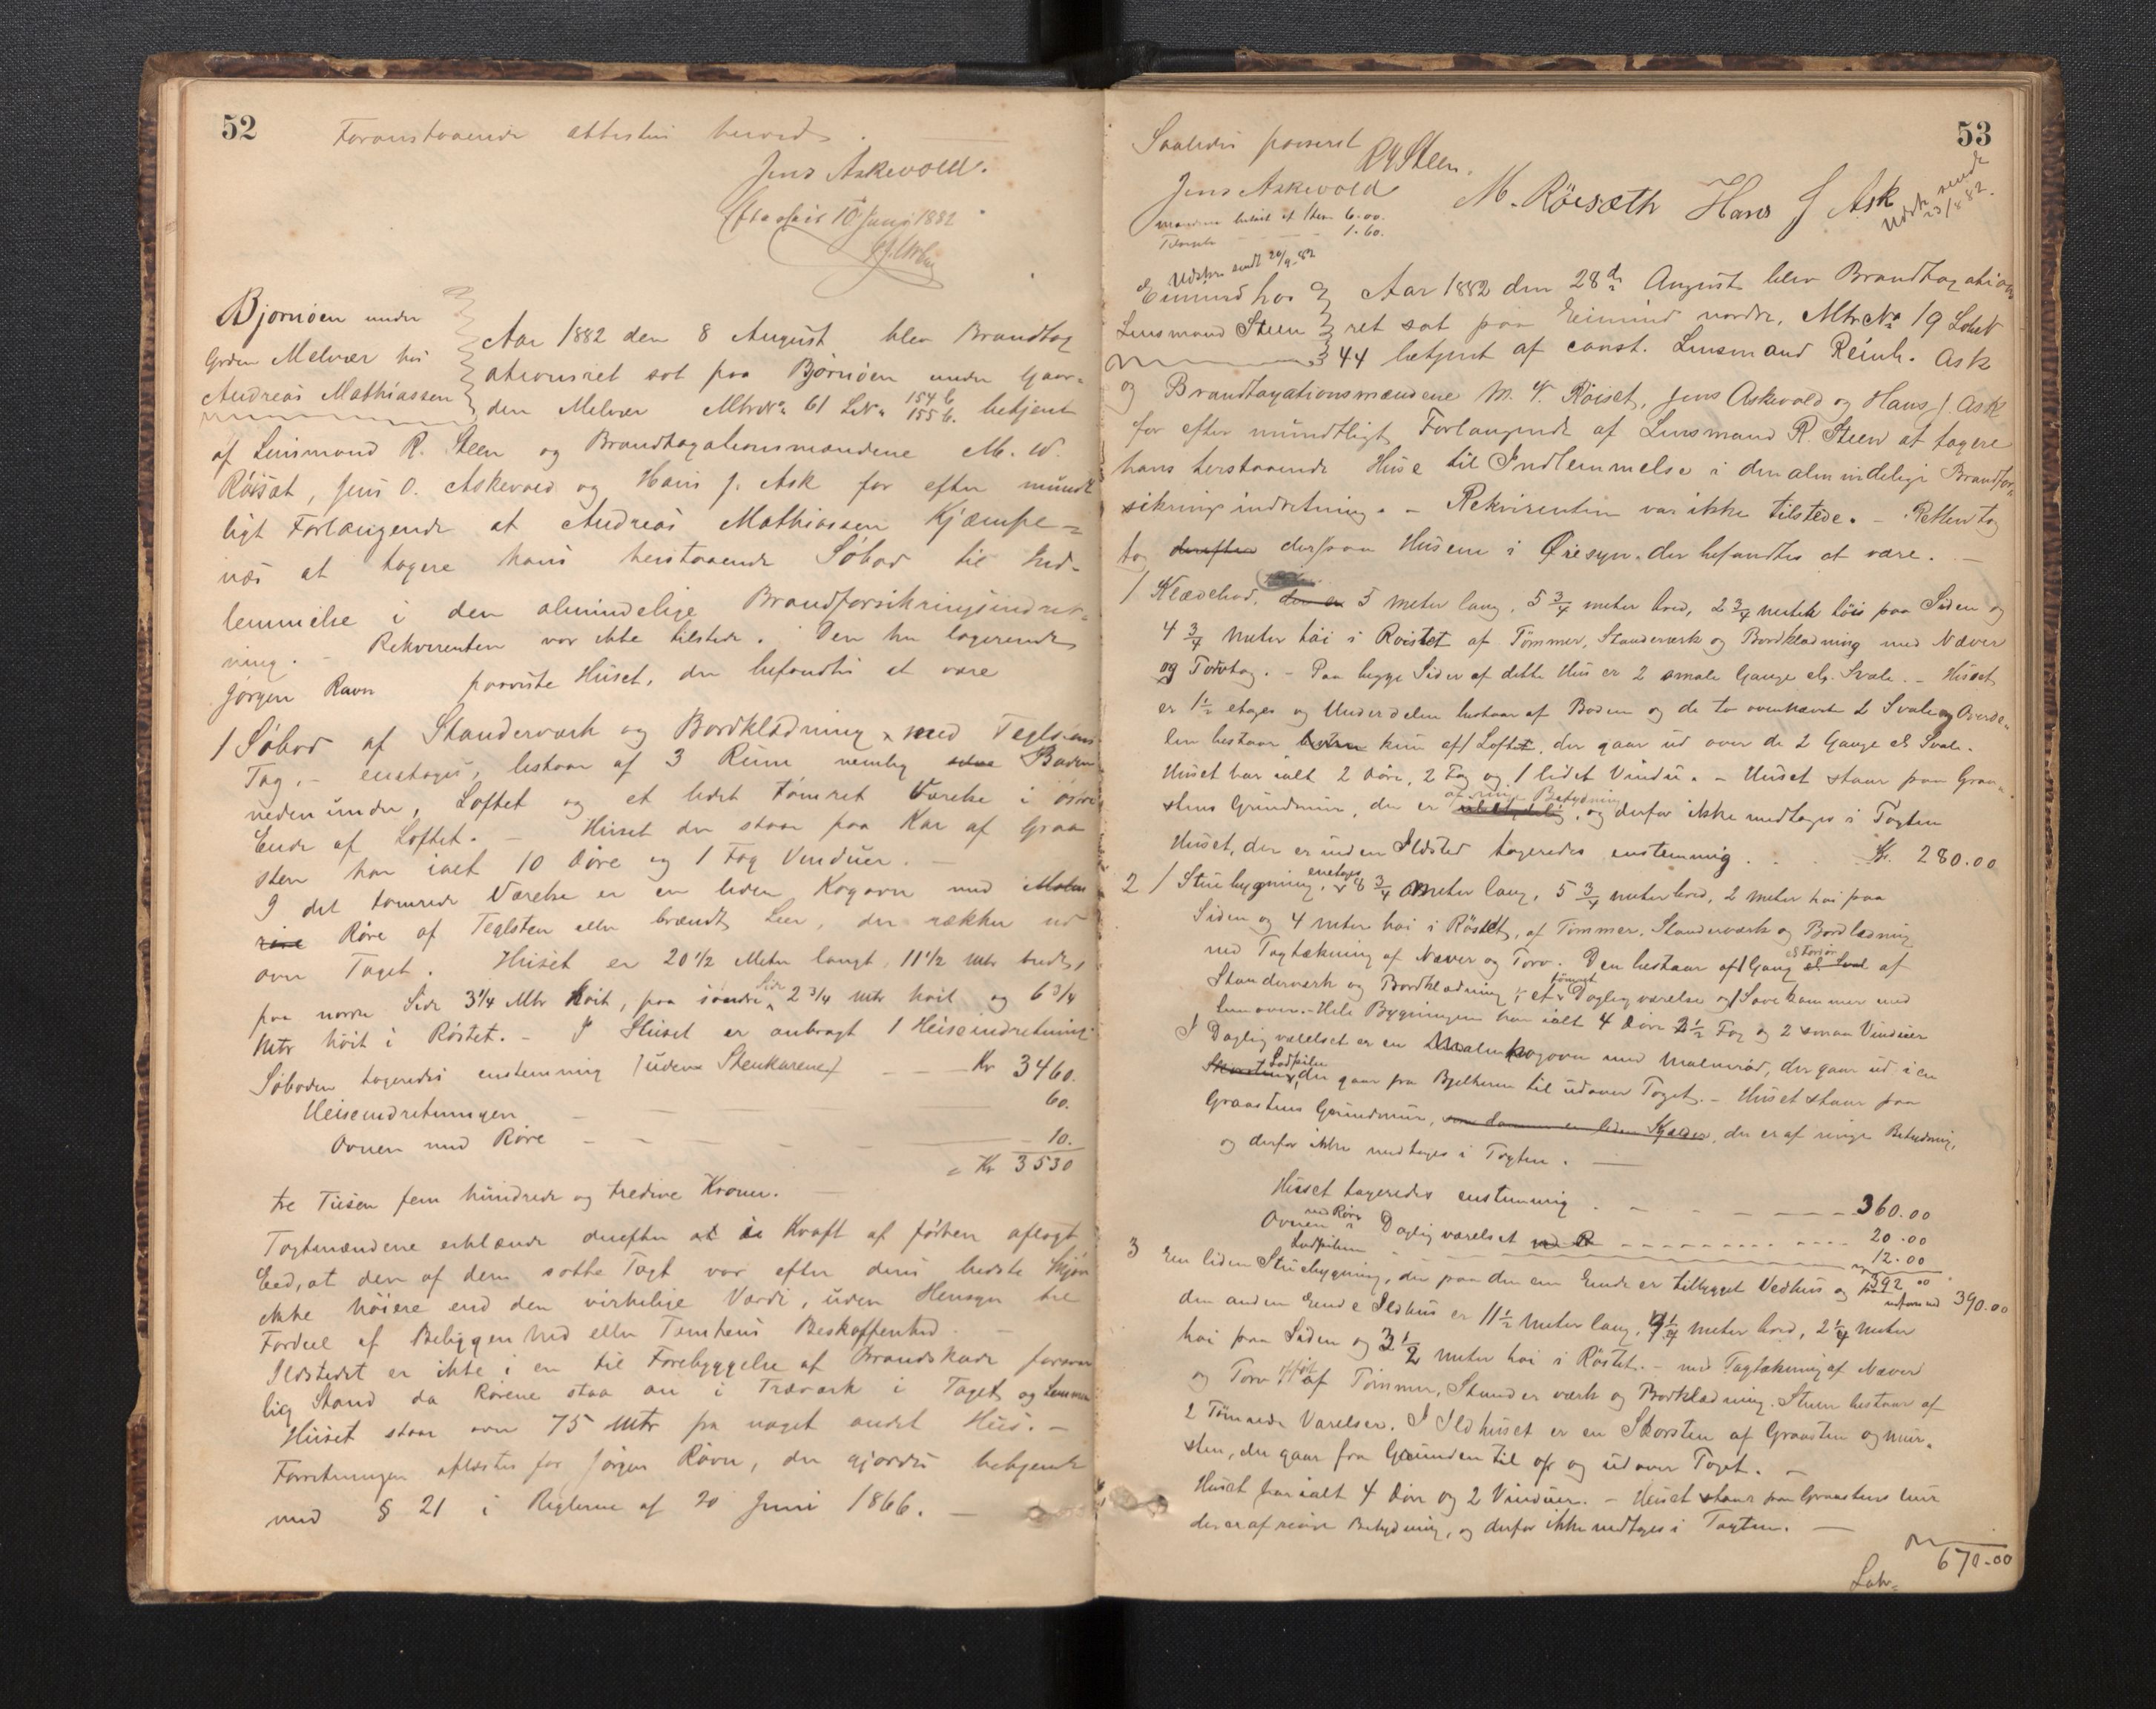 52
Foranstaaende attestires herved.
Jens Askevold.
10 Juni 1882
Bjørnøen under
Grden Melvær hos
Andreas Mathiassen
Aar 1882 den 8 August blev Brandtax
ationsret sat paa Bjørnøen under Gaar-
den Melvær Mtr№ 61 L№ 154b 155b. betjent
af Lensmand R. Steen og Brandtaxationsmændene M. W.
Röisæt, Jens O. Askevold og Hans J. Ask for efter mundt
ligt Forlangende at Andreas Mathiassen Kjæmpe-
næs at taxere hans herstaaende Søbod til Ind-
lemmelse i den almindelige Brandforsikringsindret-
ning. - Rekvirenten var ikke tilstede. Den
Jørgen Ravn paaviste Huset, der befandtes at være
1 Søbod af Standerværk og Bordklædning med Teglstens
Tag, - enetages, bestaar af 3 Rum nemlig Boden
nedenunder, Loftet og et lidet tømret Værelse i østre
Ende af Loftet. - Huset der staar paa Kar af Graa
sten har ialt 10 Døre og 1 Fag Vinduer. -
I det tømrede Værelse er en liden Kogovn med
Røre af Teglsten eller brændt Leer, der rækker ud
over Taget. Huset er 20 1/2 Meter langt, 11 1/2 mtr bredt,
paa norre Side 3 1/4 Mtr høit, paa søndre Side 2 3/4 mtr høit og 6 3/4
Mtr höit i Röstet. - I Huset er anbragt 1 Heiseindretning.
Søboden taxeredes enstemmig (uden Stenkarene) - - Kr 3460.
Heiseindretningen - - 60.
Ovnen med Røre - - - - 10.
= Kr 3530
tre Tusen fem hundrede og tredive Kroner. -
Taxtmændene erklærede derefter at i Kraft af førhen aflagt
Eed, at den af dem satte Taxt var efter deres bedste Skjøn
ikke høiere end den virkelige Værdi, uden Hensyn til
Fordeel af Beliggenhed eller Tomtens Beskaffenhed. -
Ildstedet er ikke i en til Forebyggelse af Brandskade forsvar
lig Stand da Rørene staa an i Træværk i Taget og Lemmen
Huset staar over 75 Mtr fra noget andet Hus. -
Forretningen oplæstes for Jørgen Ravn, der gjordes bekjendt
med § 21 i Reglerne af 20 Juni 1866. -
53
Saaledes passeret
R Steen.
Jens Askevold M. Röisæth Hans J Ask
Udsk. sendt 23/8 82.
Mændene betalt af Steen 6.00.
1.60.
Udskr. sendt 20/9-82
Eimind hos
Lensmand Steen
Aar 1882 den 28de August blev Brandtaxations
ret sat paa Eimind nordre, Mtr№ 19 Løb№
44 betjent af const. Lensmand Reinh. Ask
og Brandtaxationsmændene M. W. Röiset, Jens Askevold og Hans J. Ask
for efter mundtligt Forlangende af Lensmand R. Steen at taxere
hans herstaaende Huse til Indlemmelse i den almindelige Brandfor-
sikringsindretning. - Rekvirenten var ikke tilstede. - Retten tog
tog derefter derpaa Husene i Øiesyn, der befandtes at være. -
1 Klædebod, der er 5 meter lang, 5 3/4 meter bred, 2 3/4 meter höi paa Siden og
4 3/4 meter höi i Röistet af Tömmer, Standerværk og Bordklædning med Næver
og Torvtag. - Paa begge Sider af dette Hus er 2 smale Gange el. Svale. - Huset
er 1 1/2 etages og Underdelen bestaar af Boden og de to ovennævnte 2 Svale og Overde-
len bestaar kun af 1 Loft, der gaar ud over de 2 Gange el. Svale.
Huset har ialt 2 Döre, 2 Fag og 1 lidet Vindu. - Huset staar paa Graa-
stens Grundmur, der er af ringe Betydning, og derfor ikke medtages i Taxten
Huset, der er uden Ildsted taxeredes enstemmig . . . Kr. 280.00
2 1 Stuebygning, enetages 8 3/4 meter lang, 5 3/4 meter bred, 2 meter höi paa
Siden og 4 meter höi i Röstet, af Tömmer, Standerværk og Bordklædning
med Tagtækning af Næver og Torv. Den bestaar af 1 Gang el. Sval af
Standerværk og Bordklædning, 1 tömret Dagligværelse og 1 Sovekammer med
Lem over. - Hele Bygningen har ialt 4 Döre 2 1/2 Fag og 2 smaa Vinduer
I Dagligværelset er en Malmkogovn med Malmrör, der gaar ud i en
Skorsten, der gaar fra Bjelkerne til udover Taget. - Huset staar paa
Graastens Grundmur, som danner en liden Kjælder, der er af ringe Betydning,
og derfor ikke medtages i Taxten. -
Huset taxeredes enstemmig . - - - - 360.00
Ovnen med Röre i Dagligværelset - - - - 20.00
12.00
392.00
390.00
3 En liden Stuebygning, der paa den ene Ende er tilbygget Vedhus og paa
den anden Ende Ildhus er 11 1/2 meter lang, 4 1/4 meter bred, 2 1/4 meter
höi paa Siden og 3 1/2 meter höi i Röstet. - med Tagtækning af Næver
og Torv af Tömmer, Standerværk og Bordklædning. Stuen bestaar af
2 Tömrede Værelser. I Ildhuset er en Skorsten af Graasten og Mur-
sten, der gaar fra Grunden til op og udover Taget. -
Huset har ialt 4 Döre og 2 Vinduer. - Huset staar paa Graastens Mur
der er af ringe Betydning, og derfor ikke medtages i Taxten. -
670.00
Latr=